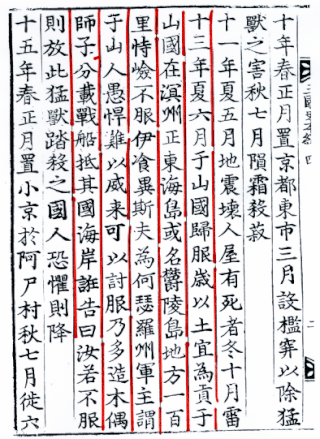 十年春正月置京都東市三月設檻穽以除猛
獸之害秋七月隕霜殺菽
十一年夏五月地震壞人屋有死者冬十月雷
十三年夏六月于山國歸服歳以土宜為貢于
山國在溟州正東海島或名欝陵島地方一百
里恃嶮不服伊飡異斯夫為何瑟羅州軍主謂
于山人愚悍難以威来可以計服乃多造木偶
師子分載戰船抵其國海岸誑告曰汝若不服
則放此猛獸踏殺之國人恐懼則降
十五年春正月置小京於阿尸村秋七月徙六